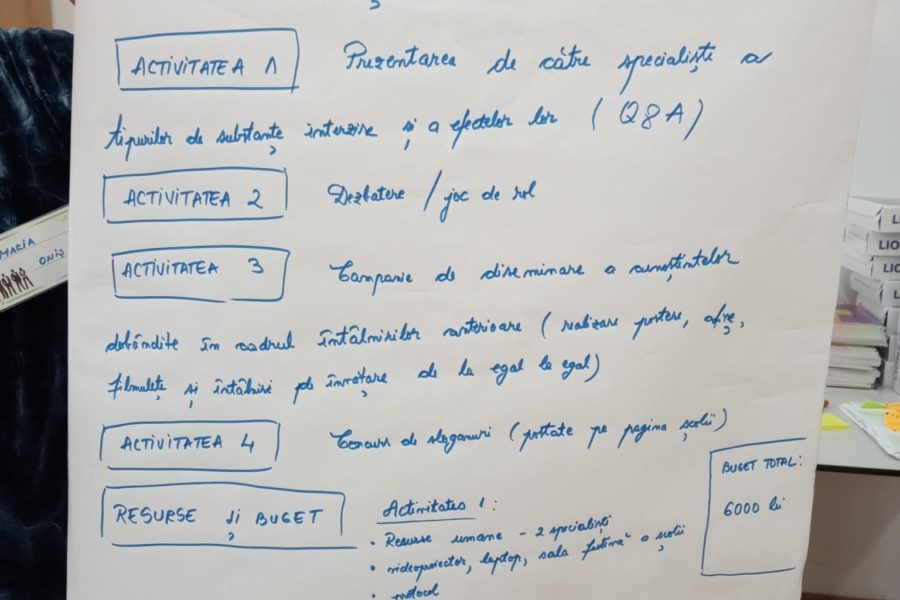 ACTIVITATEA 1 Prezentarea de către specialiști a
tipurilor de substanțe interzise și a efectelor lor (Q&A)
ACTIVITATEA 2 Dezbatere / joc de rol
ACTIVITATEA 3 Campanie de diseminare a cunoștințelor
dobândite în cadrul întâlnirilor anterioare (realizare postere, afișe,
filmulețe și întâlniri pe învățare de la egal la egal)
ACTIVITATEA 4 Concurs de sloganuri (postate pe pagina școlii)
RESURSE ȘI BUGET
Activitatea 1:
• Resurse umane - 2 specialiști
• videoproiector, laptop, sala festivă a școlii
• protocol
BUGET TOTAL:
6000 lei
MARIA
ONIȘ
LIO
LIO
LIO